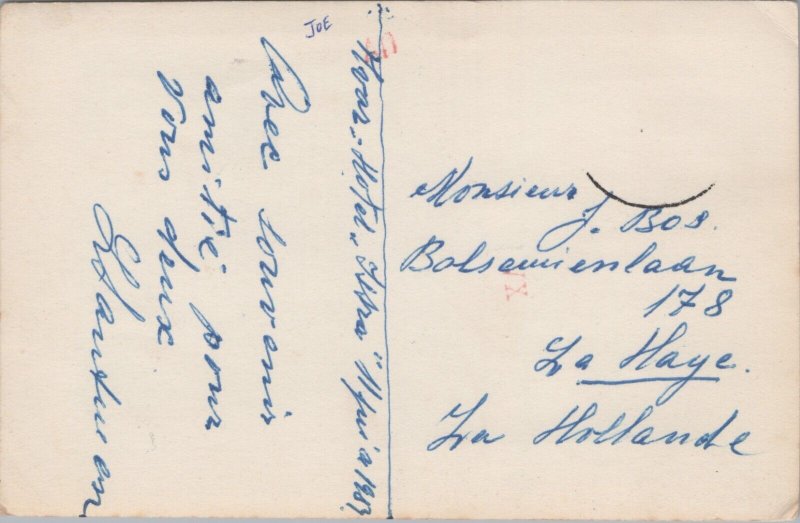 JOE
Hvar - Hotel „Istra" 11 juin 1953
Avec souvenir
amitié pour
Vous deux
Monsieur
J. Bos.
Balsemienlaan
178
La Haye.
La Hollande